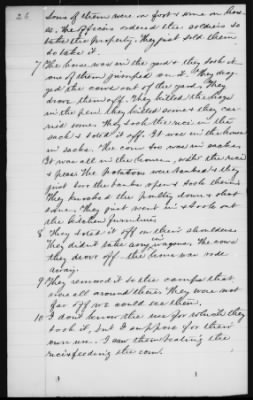 26
Some of them were on foot & some on hors
es. The officers ordered the soldiers to
take the property. They just told them
to take it.
7 The horse was in the yard & they took it
one of them jumped on it. They drag
ged the cows out of the yard. They
drove them off. They killed the hogs
in the pen they killed some & they car
ried some. They took the rice in the
sack & toted it off. It was in the house
in sacks. The corn too was in sacks
It was all in the house, with the rice
& peas. The Potatoes were banked & they
just tore the banks open & took them.
They knocked the poultry down & shot
some. They just went in & took out
the kitchen furniture
8 They toted it off on their shoulders
They didn't take any in wagons. The cows
they drove off - the horse was rode
away.
9 They removed it to the camps that
were all around there. They were not
far off we could see them.
10 I don't know the use for which they
took it, but I suppose for their
own use. I saw them eating the
rice & feeding the corn.